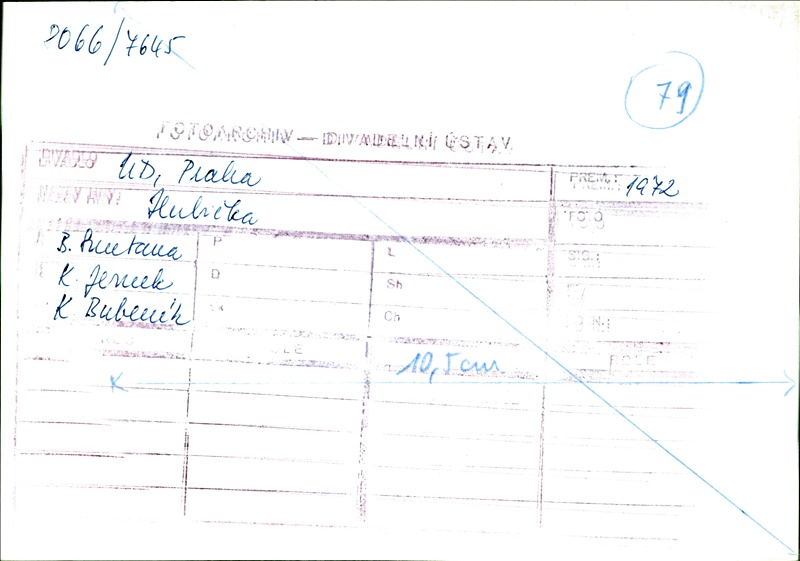 2066/7645
79
FOTOARCHIV — DIVADELNÍ ÚSTAV
DIVADLO ND, Praha
PREM.: 1972
NÁZEV HRY: Hubička
FOTO
B. Smetana P L SIGN.
K. Jernek D Sh
K Bubeník Ch
10,5cm